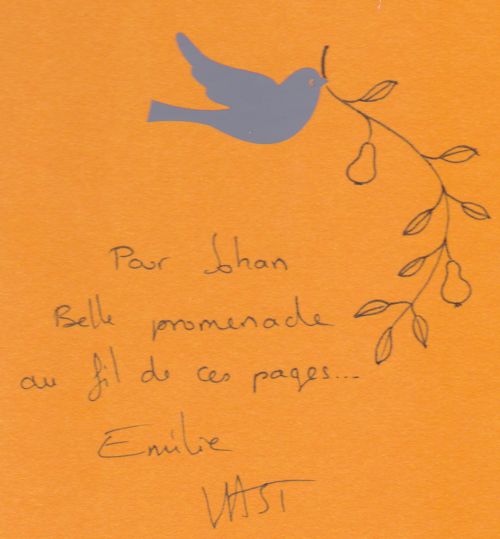 Pour Johan
Belle promenade
au fil de ces pages...
Emilie
VAST